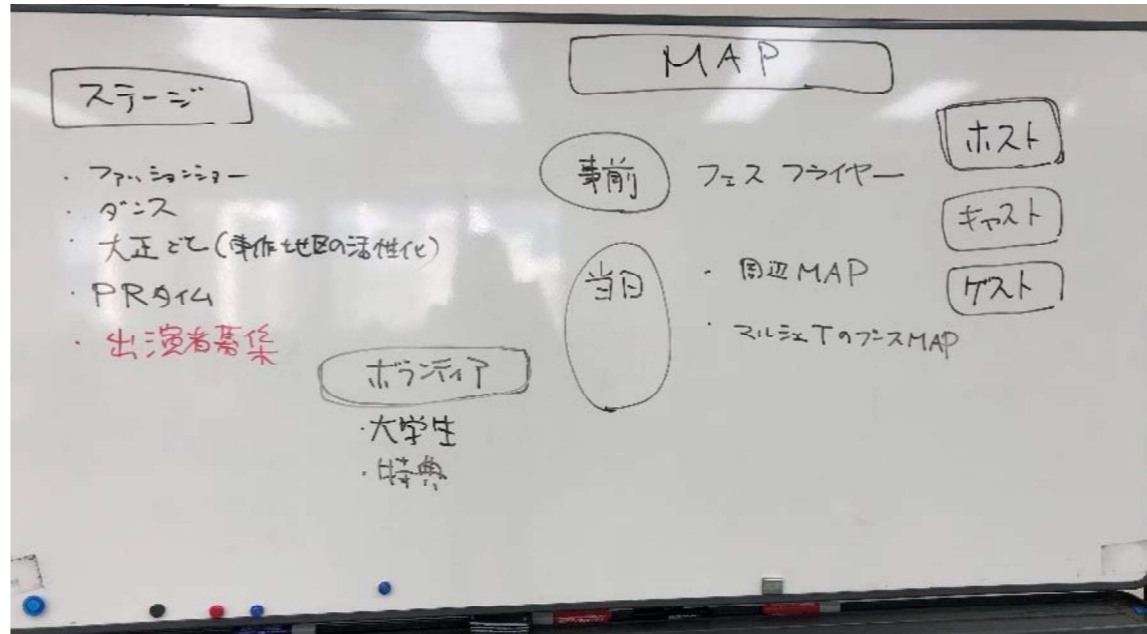 ステージ
・ファッションショー
・ダンス
・大正ごと(事作地区の活性化)
・PRタイム
・出演者募集
ボランティア
・大学生
・特典
MAP
事前
フェス フライヤー
当日
・周辺MAP
・マルシェTのブースMAP
ホスト
キャスト
ゲスト